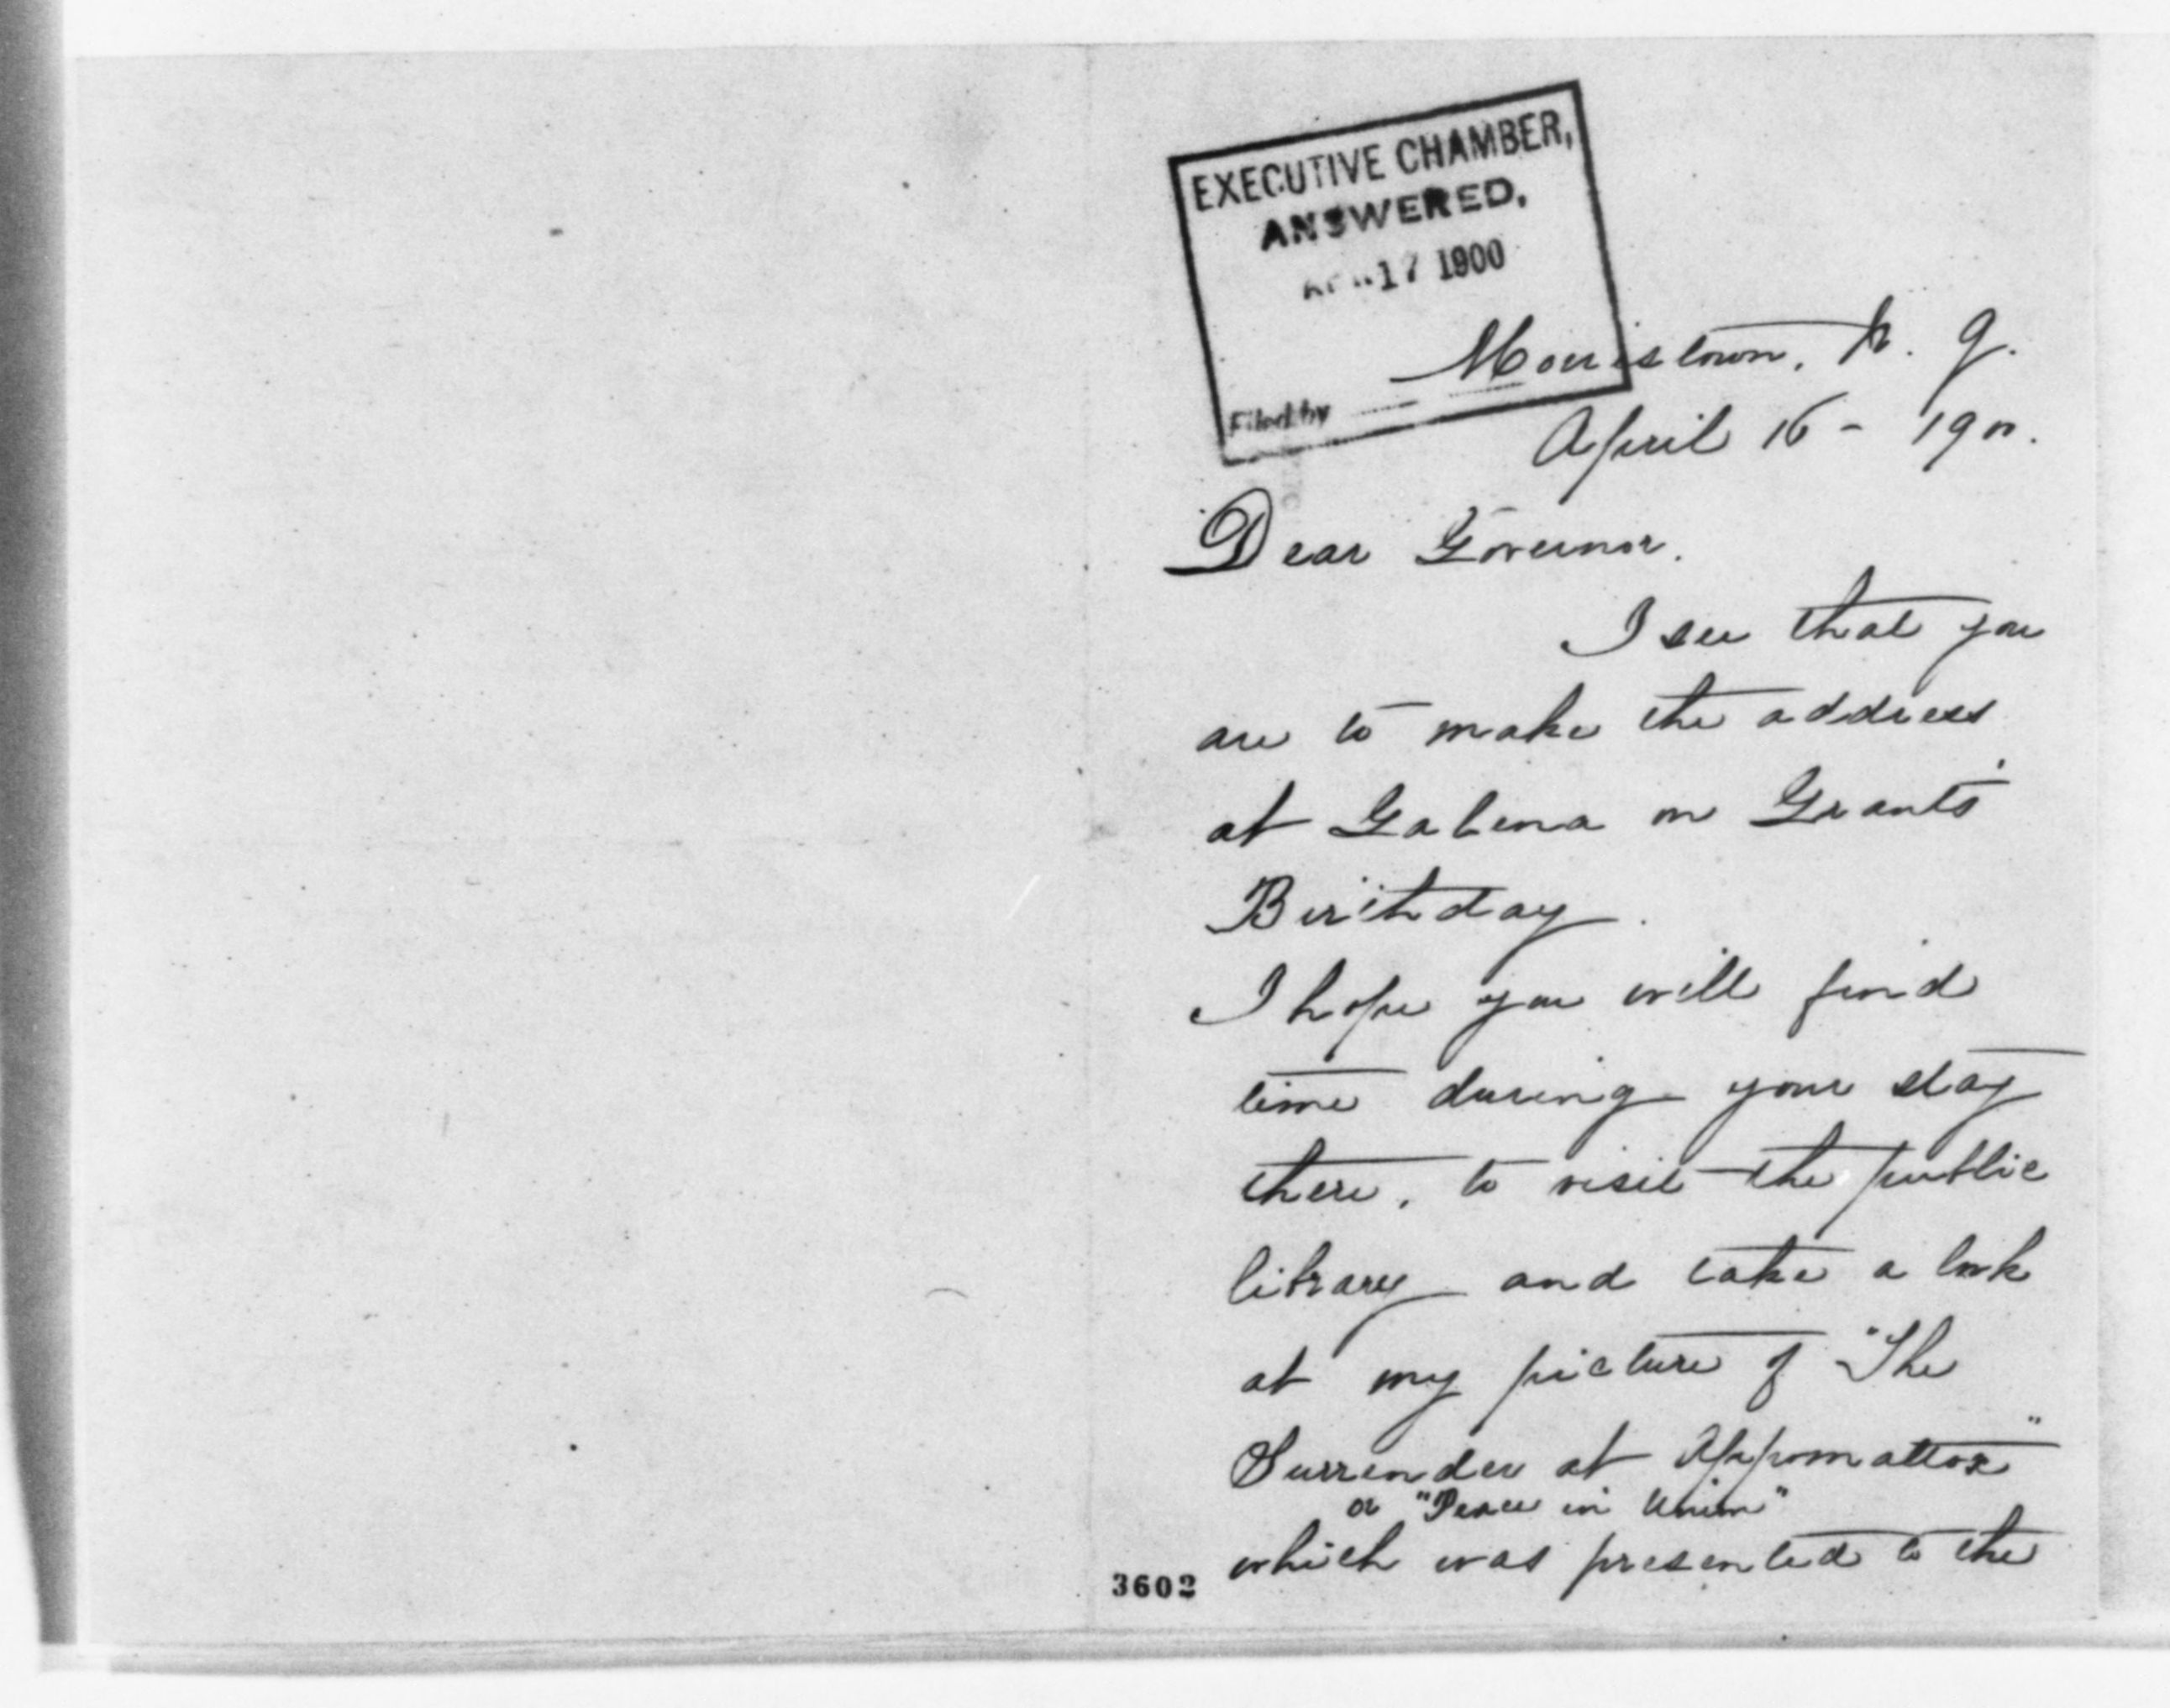 EXECUTIVE CHAMBER,
ANSWERED,
APR 17 1900
Filed by
Morristown, N. J.
April 16 - 1900.
Dear Governor.
I see that you
are to make the address
at Galena on Grant's
Birthday.
I hope you will find
time during your stay
there, to visit the public
library and take a look
at my picture of "The
Surrender at Appomattox"
or "Peace in Union"
which was presented to the
3602